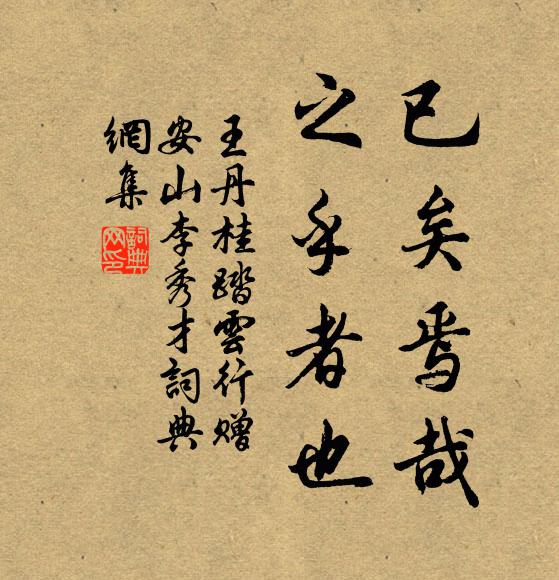 已矣焉哉
之乎者也
王丹桂踏雲行贈
安山李秀才詞典
網集
詞典
网印